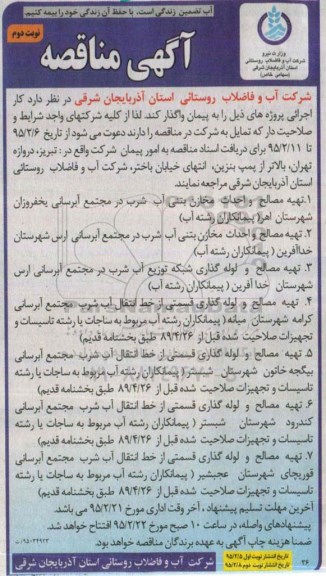 آب تضمین زندگی است، با حفظ آن زندگی خود را بیمه کنیم.
نوبت دوم
آگهی مناقصه
وزارت نیرو
شرکت آب و فاضلاب روستائی
استان آذربایجان شرقی
(سهامی خاص)
شرکت آب و فاضلاب روستائی استان آذربایجان شرقی در نظر دارد کار
اجرائی پروژه های ذیل را به پیمان واگذار کند. لذا از کلیه شرکتهای واجد شرایط و
صلاحیت دار که تمایل به شرکت در مناقصه را دارند دعوت می شود از تاریخ ۹۵/۲/۶
تا ۹۵/۲/۱۱ برای دریافت اسناد مناقصه به امور پیمان شرکت واقع در : تبریز، دروازه
تهران، بالاتر از پمپ بنزین، انتهای خیابان باختر، شرکت آب و فاضلاب روستائی
استان آذربایجان شرقی مراجعه نمایند.
۱.تهیه مصالح و احداث مخازن بتنی آب شرب در مجتمع آبرسانی یخفروزان
شهرستان اهر( پیمانکاران رشته آب)
۲.تهیه مصالح و احداث مخازن بتنی آب شرب در مجتمع آبرسانی ارس شهرستان
خداآفرین ( پیمانکاران رشته آب)
۳. تهیه مصالح و لوله گذاری شبکه توزیع آب شرب در مجتمع آبرسانی ارس
شهرستان خدا آفرین ( پیمانکاران رشته آب)
۴. تهیه مصالح و لوله گذاری قسمتی از خط انتقال آب شرب مجتمع آبرسانی
کرامه شهرستان میانه ( پیمانکاران رشته آب مربوط به ساجات یا رشته تاسیسات و
تجهیزات صلاحیت شده قبل از ۸۹/۴/۲۶ طبق بخشنامه قدیم)
۵. تهیه مصالح و لوله گذاری قسمتی از خط انتقال آب شرب مجتمع آبرسانی
بیگجه خاتون شهرستان شبستر ( پیمانکاران رشته آب مربوط به ساجات یا رشته
تاسیسات و تجهیزات صلاحیت شده قبل از ۸۹/۴/۲۶ طبق بخشنامه قدیم)
۶. تهیه مصالح و لوله گذاری قسمتی از خط انتقال آب شرب مجتمع آبرسانی
کندرود شهرستان شبستر ( پیمانکاران رشته آب مربوط به ساجات یا رشته
تاسیسات و تجهیزات صلاحیت شده قبل از ۸۹/۴/۲۶ طبق بخشنامه قدیم)
۷. تهیه مصالح و لوله گذاری قسمتی از خط انتقال آب شرب مجتمع آبرسانی
قوریجای شهرستان عجبشیر ( پیمانکاران رشته آب مربوط به ساجات یا رشته
تاسیسات و تجهیزات صلاحیت شده قبل از ۸۹/۴/۲۶ طبق بخشنامه قدیم)
آخرین مهلت تسلیم پیشنهاد ، آخر وقت اداری مورخ ۹۵/۲/۲۱ می باشد.
پیشنهادهای واصله، در ساعت ۱۰ صبح مورخ ۹۵/۲/۲۲ افتتاح خواهد شد.
ضمنا هزینه چاپ آگهی به عهده برندگان مناقصه خواهد بود.
تاریخ انتشار نوبت اول ۹۵/۲/۵
تاریخ انتشار نوبت دوم ۹۵/۲/۸
شرکت آب و فاضلاب روستائی استان آذربایجان شرقی
۲۶